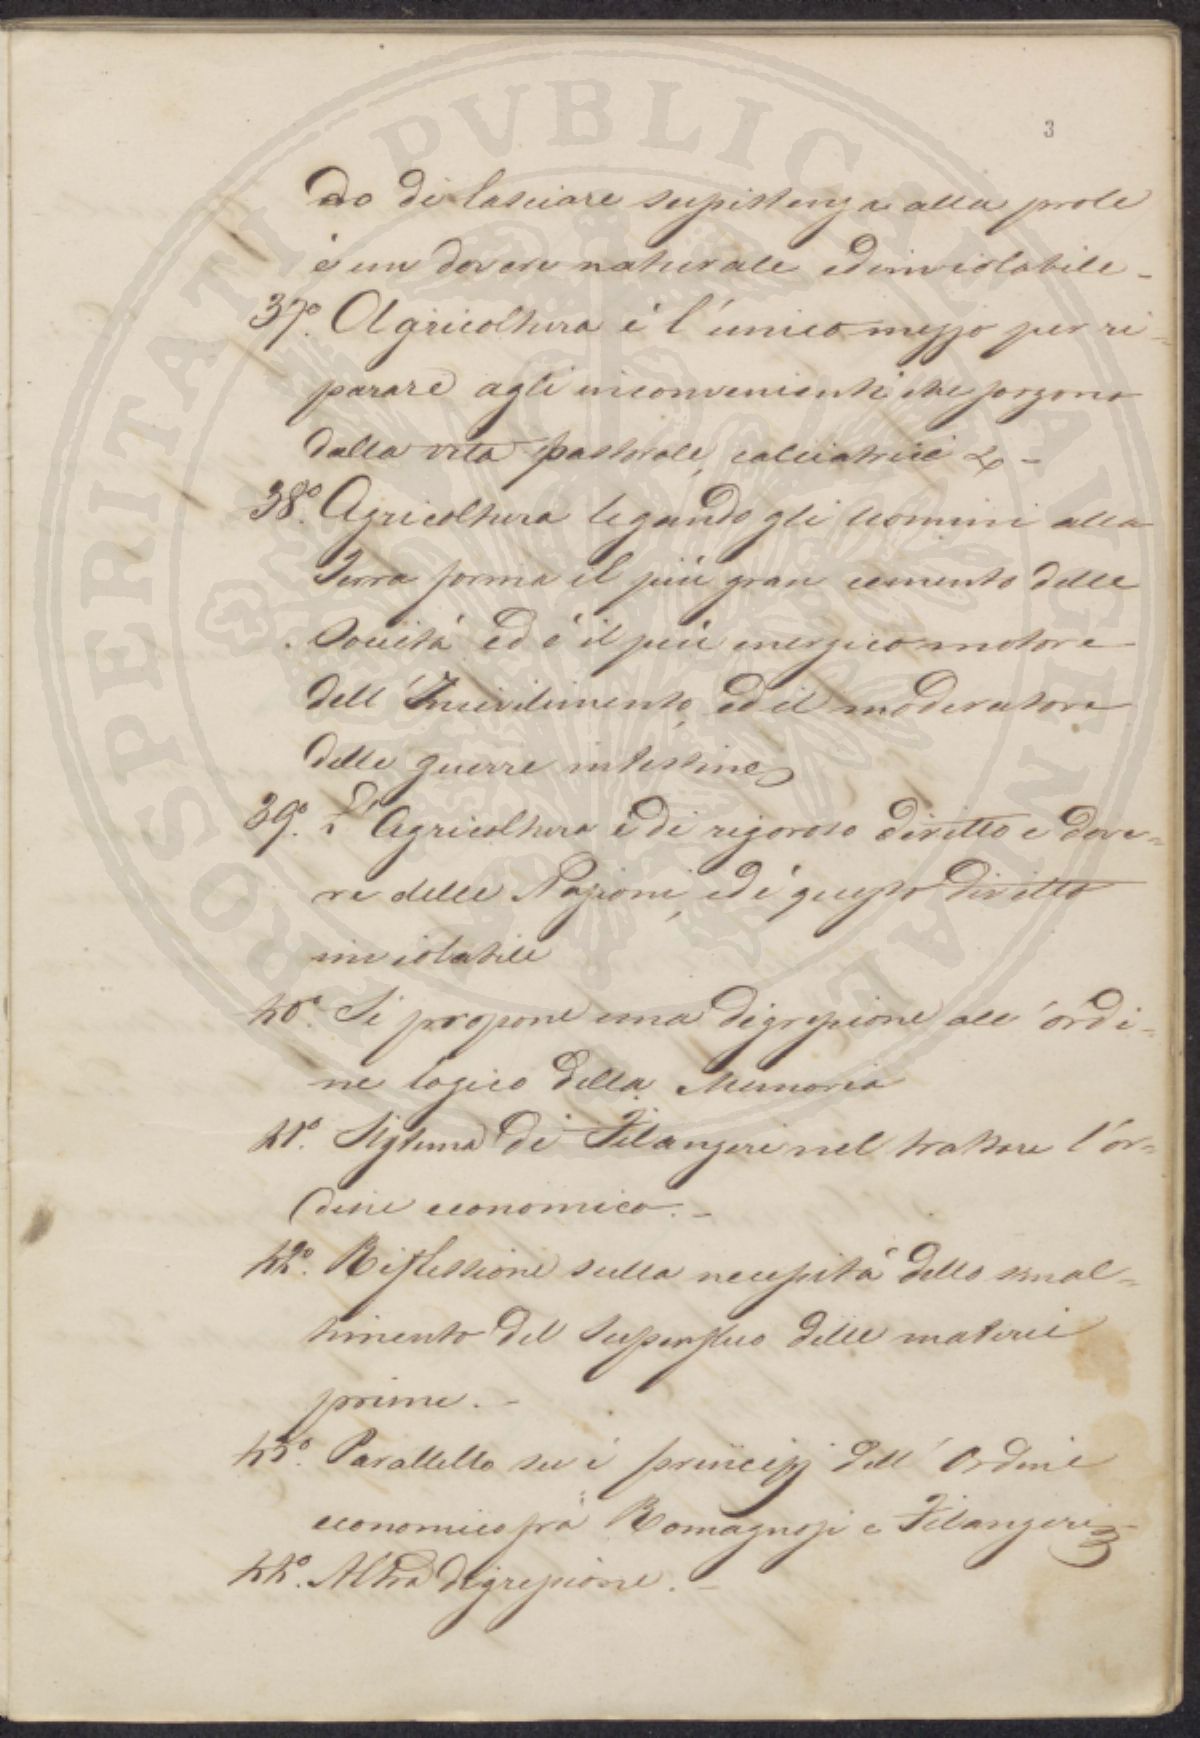 3
do di lasciare sussistenza alla prole
è un dovere naturale ed inviolabile -
37.° Agricoltura è l'unico mezzo per ri=
parare agli inconvenienti che sorgono
dalla vita pastorale, calciatrice &c -
38.° Agricoltura legando gli uomini alla
Terra forma il più gran cemento delle
Società ed è il più energico motore
dell'Incivilimento, ed il moderatore
delle guerre intestine
39.° L'Agricoltura è di rigoroso diritto e dove=
re delle Nazioni, ed è questo diritto
inviolabile
40.° Si propone una digressione all'ordi=
ne logico della Memoria
41.° Sistema di Filangeri nel trattare l'or=
dine economico. -
42.° Riflessione sulla necessità dello smal=
timento del superfluo delle materie
prime. -
43.° Parallello su i principj dell'Ordine
economico frà Romagnosi e Filangeri
44.° Altra digressione. -
PROSPERITATI PVBLICAE AVGENDAE